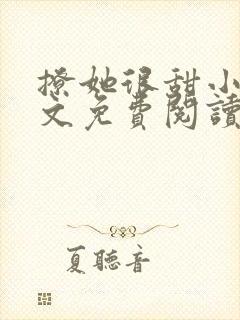 撩她很甜小
文免費閱讀
夏聽音